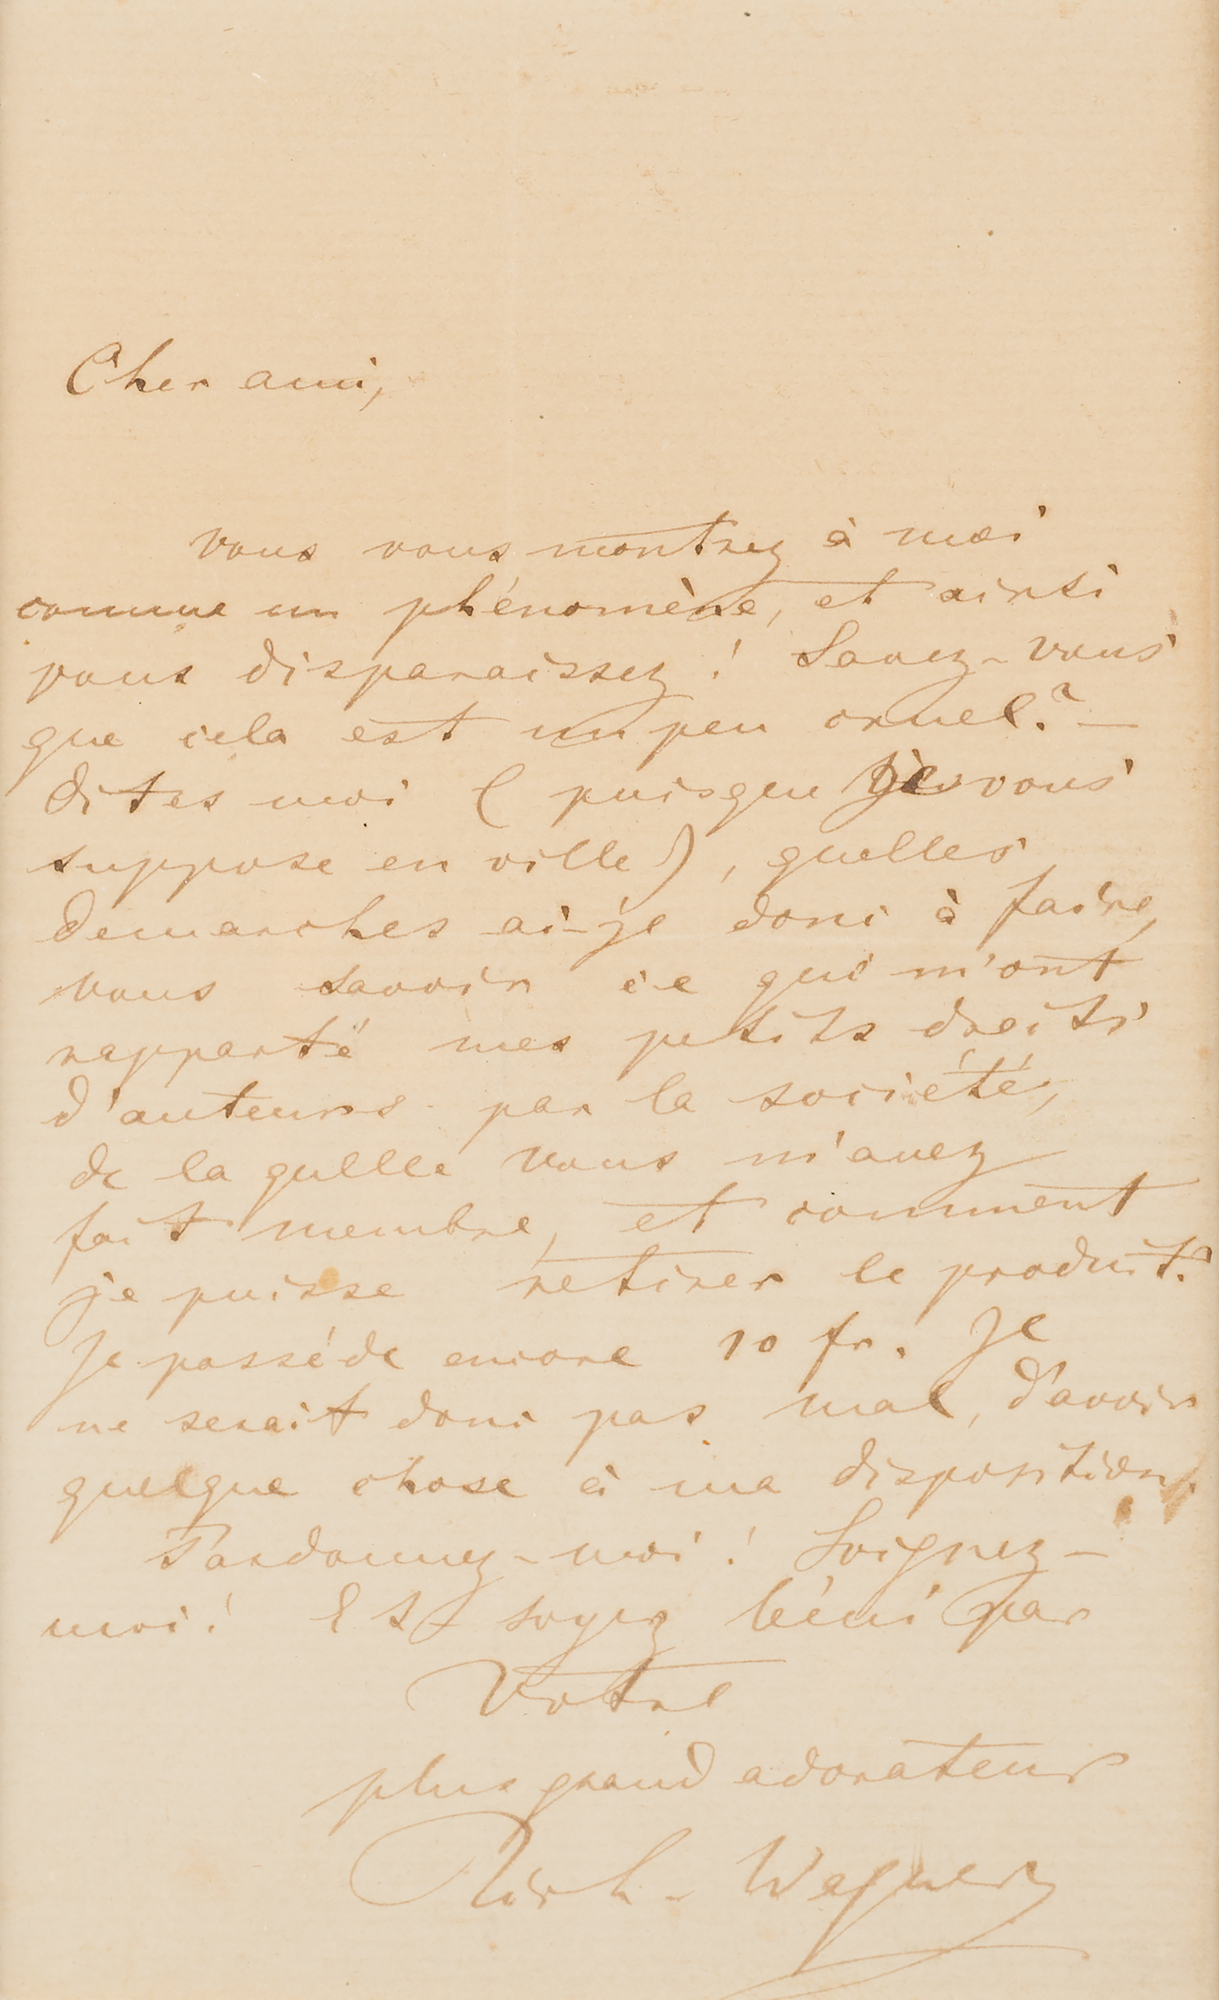 Cher ami,
vous vous montrez à moi
comme un phénomène, et ainsi
vous disparaissez! Savez-vous
que cela est un peu cruel? —
dites moi (puisque je vous
suppose en ville), quelles
demarches ai-je donc à faire,
vous savoir ce qui m'ont
rapporté mes petits droits
d'auteurs par la société,
de la quelle vous m'avez
fait membre, et comment
je puisse retirer le produit?
Je posséde encore 10 fr. Je
ne serait donc pas mal, d'avoir
quelque chose à ma disposition.
Pardonnez-moi! Soignez-
moi! Et soyez béni par
Votre
plus grand adorateur
Rich. Wagner